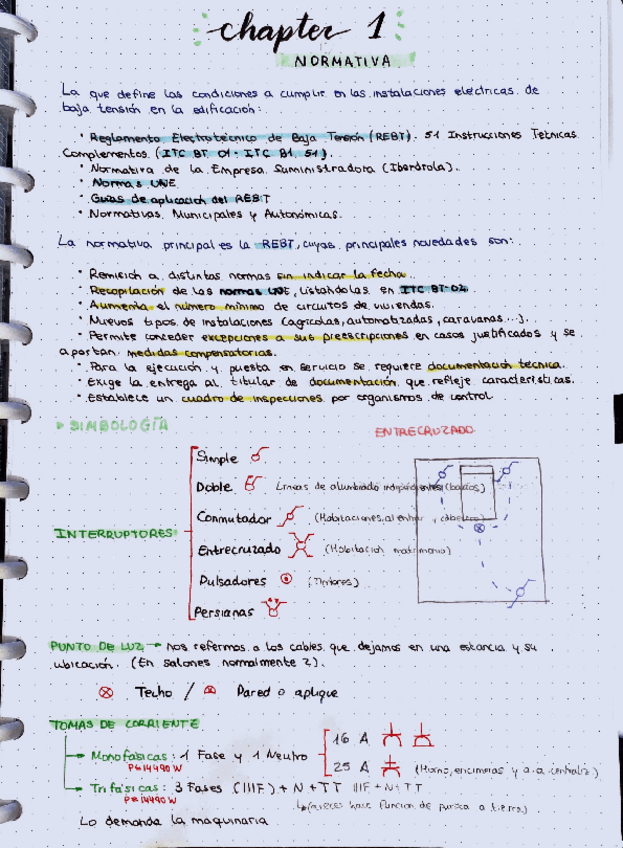 chapter 1
NORMATIVA
La que define las condiciones a cumplir en las instalaciones eléctricas de
baja tensión en la edificación:
· Reglamento Electrotécnico de Baja Tensión (REBT). 51 Instrucciones Técnicas
Complementos (ITC BT 01 - ITC BT 51).
· Normativa de la Empresa Suministradora (Iberdrola).
· Normas UNE
· Guías de aplicación del REBT
· Normativas Municipales y Autonómicas.
La normativa principal es la REBT, cuyas principales novedades son:
· Remisión a distintas normas sin indicar la fecha.
· Recopilación de las normas UNE, listándolas en ITC BT-02
· Aumenta el número mínimo de circuitos de viviendas.
· Nuevos tipos de instalaciones (agrícolas, automatizadas, caravanas...).
· Permite conceder excepciones a sus preescripciones en casos justificados y se
aportan medidas compensatorias.
· Para la ejecución y puesta en servicio se requiere documentación técnica.
· Exige la entrega al titular de documentación que refleje características.
· Establece un cuadro de inspecciones por organismos de control
SIMBOLOGÍA
ENTRECRUZADO
Simple
Doble Líneas de alumbrado independientes (baños)
INTERRUPTORES
Conmutador (Habitaciones, al entrar y cabecero)
Entrecruzado (Habitación matrimonio)
Pulsadores (Timbres)
Persianas
PUNTO DE LUZ → nos referimos a los cables que dejamos en una estancia y su
ubicación. (En salones normalmente 2).
Techo / Pared o aplique
TOMAS DE CORRIENTE
16 A
Monofásicas: 1 Fase y 1 Neutro
P≤14490 W
25 A (Horno, encimeras y a.a. centraliz)
Trifásicas: 3 Fases (IIIF) + N + TT IIIF + N + TT
P≥14490 W
(a veces hace función de puesta a tierra)
Lo demanda la maquinaria